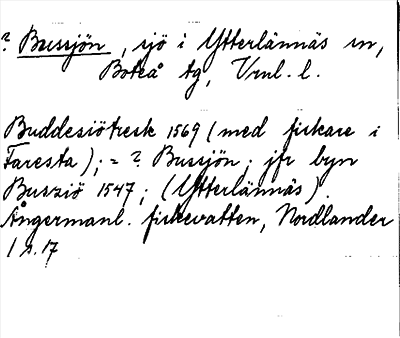 ? Bussjön, sjö i Ytterlännäs sn,
Boteå tg, Vrnl. l.
Buddesiötresk 1569 (med fiskare i
Faresta); = ? Bussjön; jfr byn
Busziö 1547; (Ytterlännäs).
Ångermanl. fiskevatten, Nordlander
1 s. 17